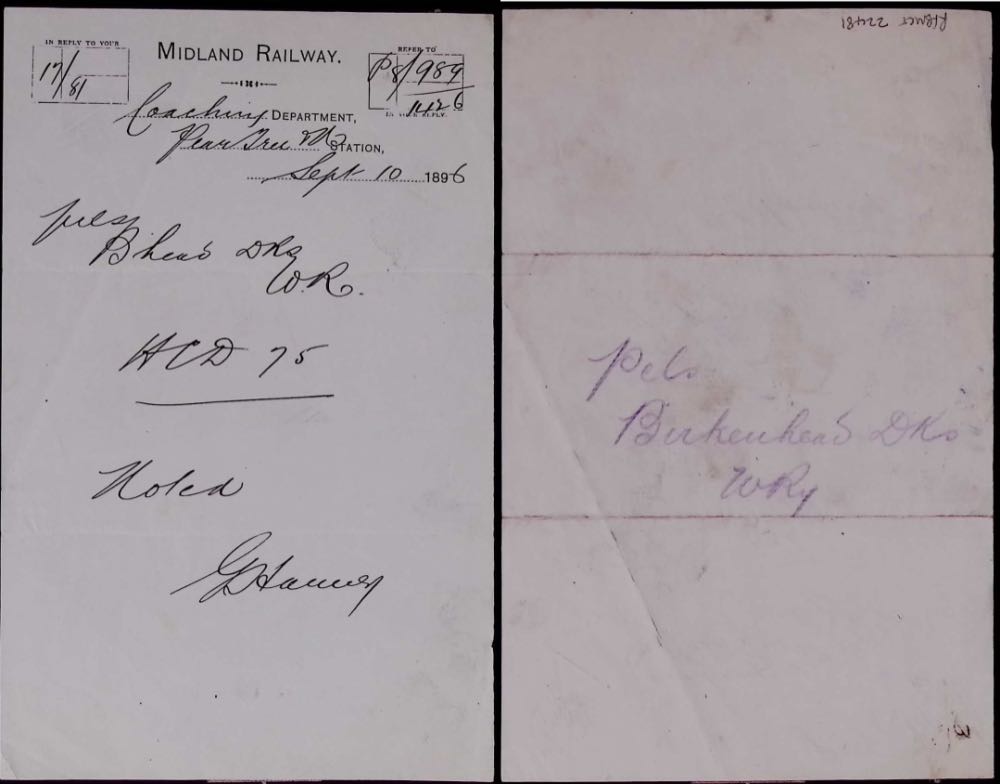 IN REPLY TO YOUR
17/81
MIDLAND RAILWAY.
REFER TO
P8/989
11126
IN YOUR REPLY.
Coaching DEPARTMENT,
Pear Tree STATION,
Sept 10 1896
B'head DKs
W.R.
HCD 75
Noted
Pcls
Birkenhead DKs
WRy
22481